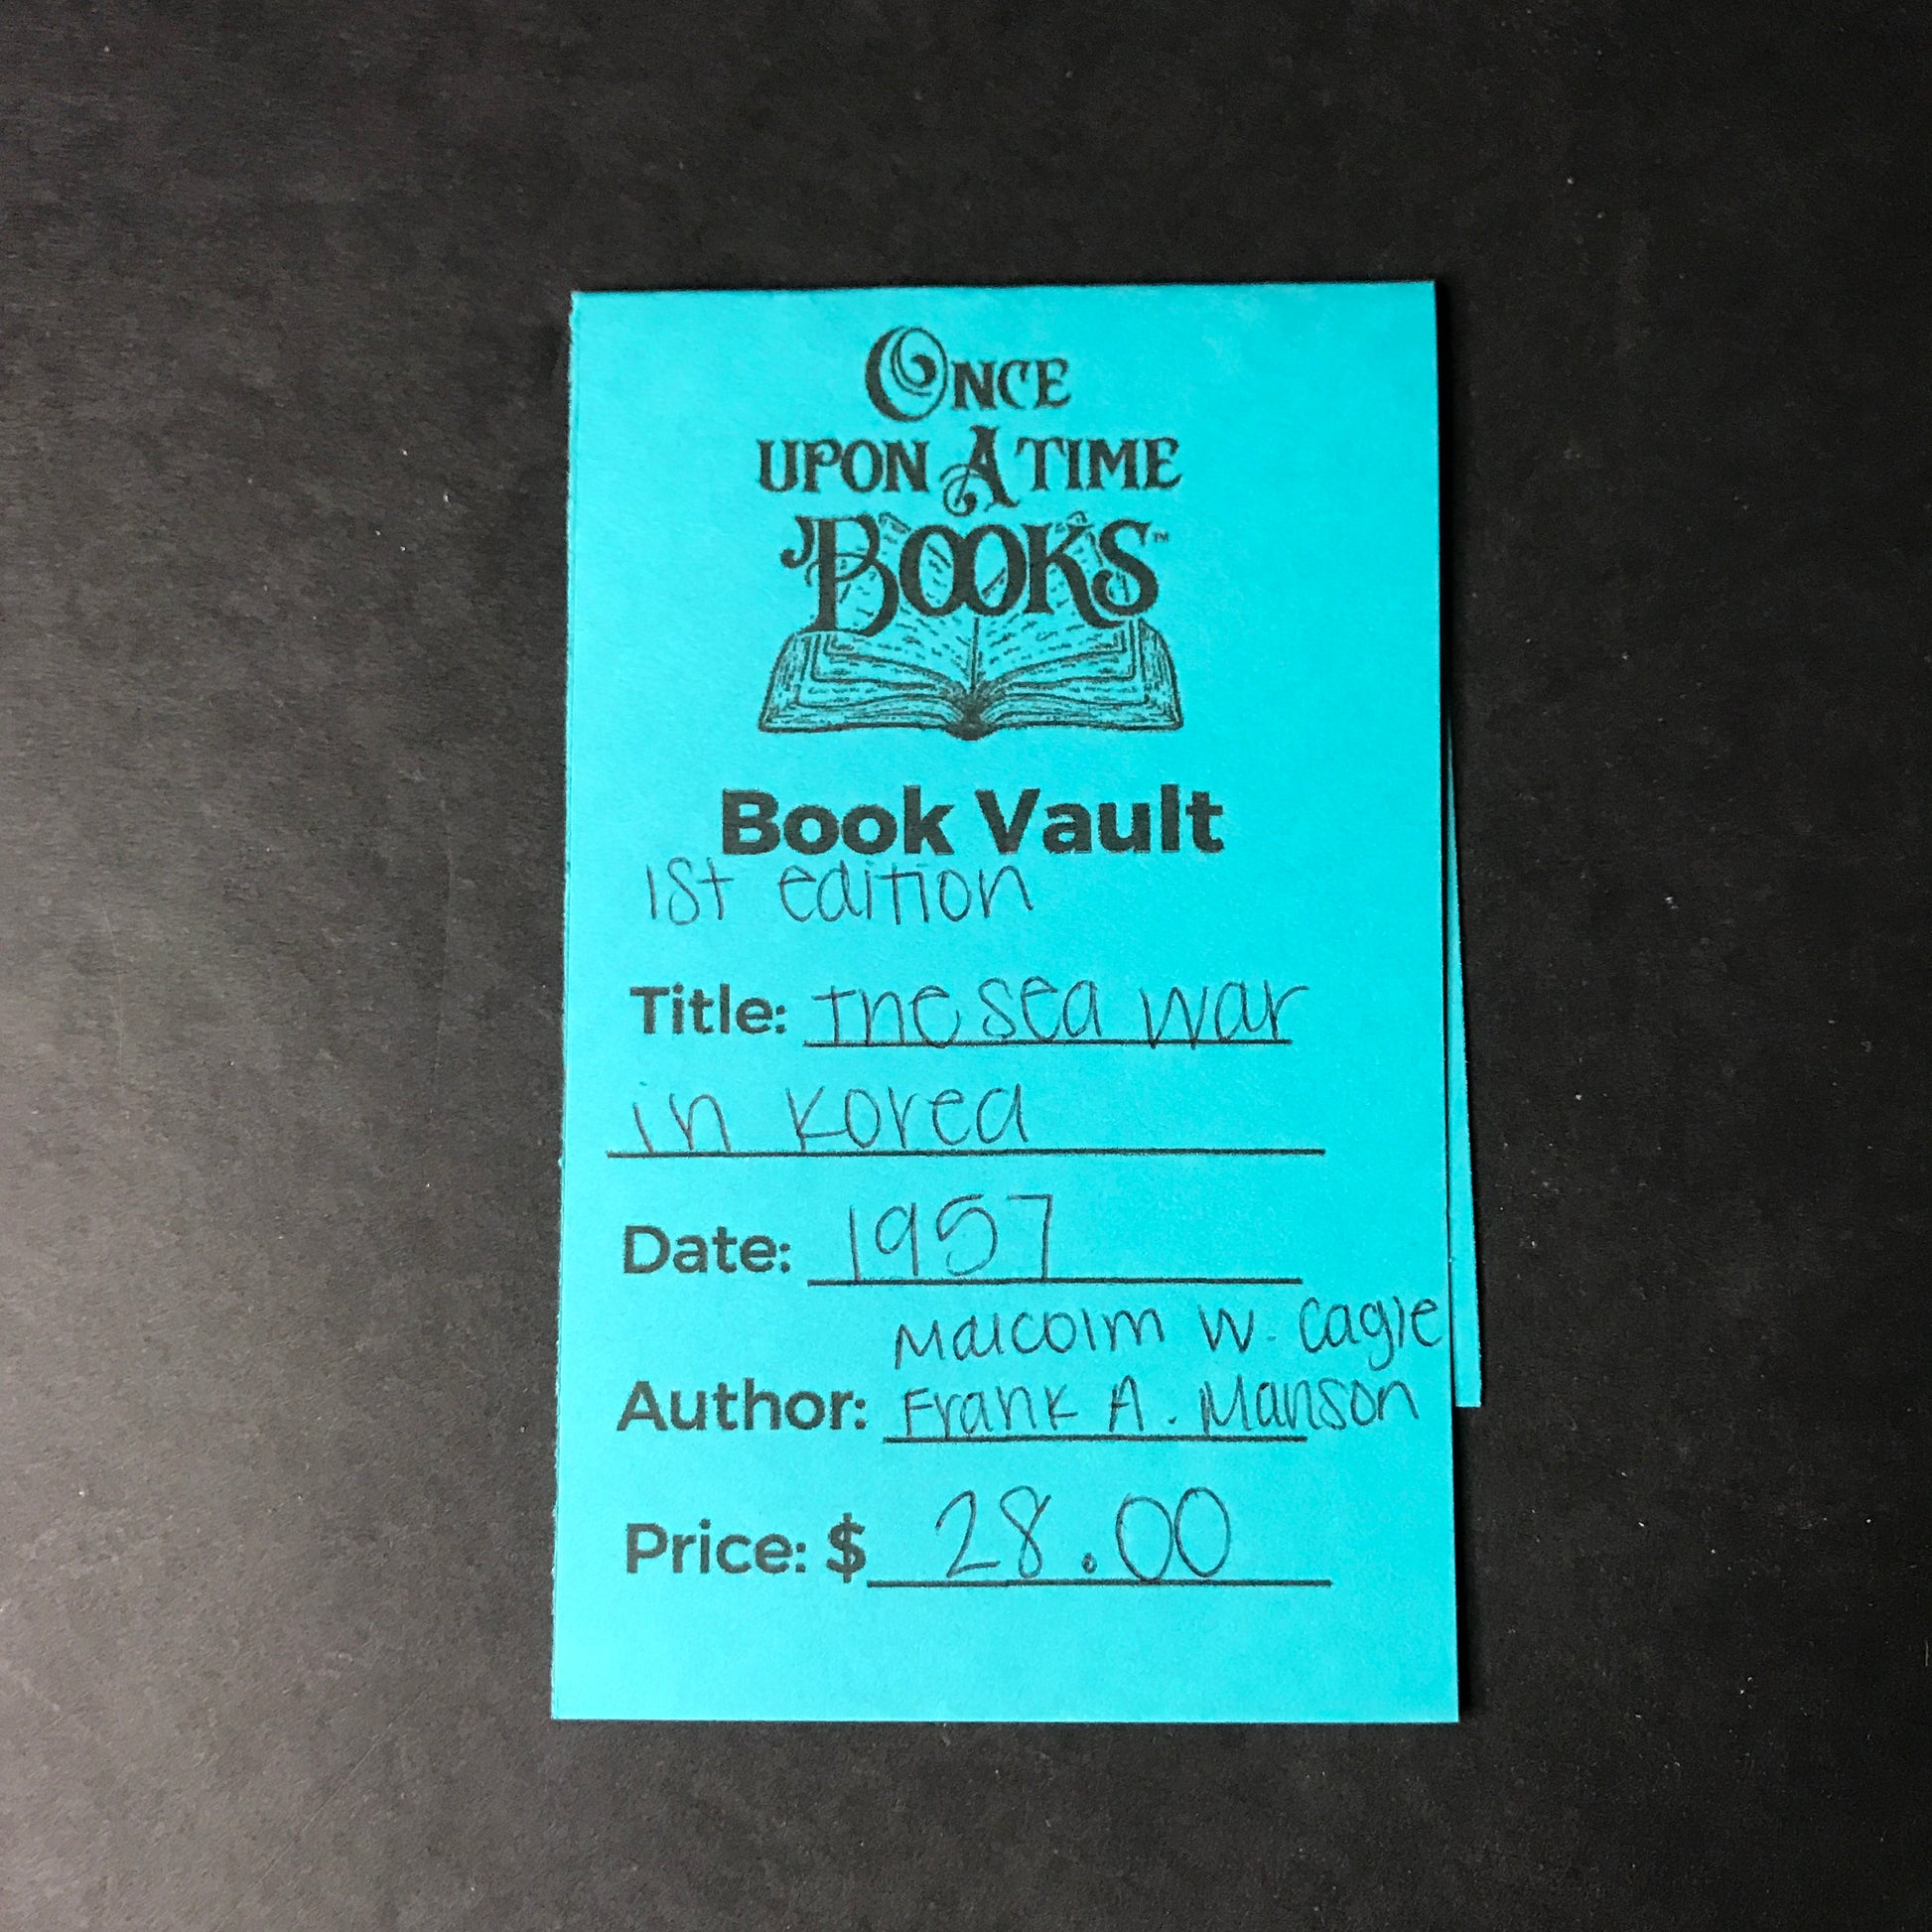 ONCE
UPON A TIME
BOOKS™
Book Vault
1st edition
Title: The sea war
in Korea
Date: 1957
Malcolm W. Cagle
Author: Frank A. Manson
Price: $ 28.00